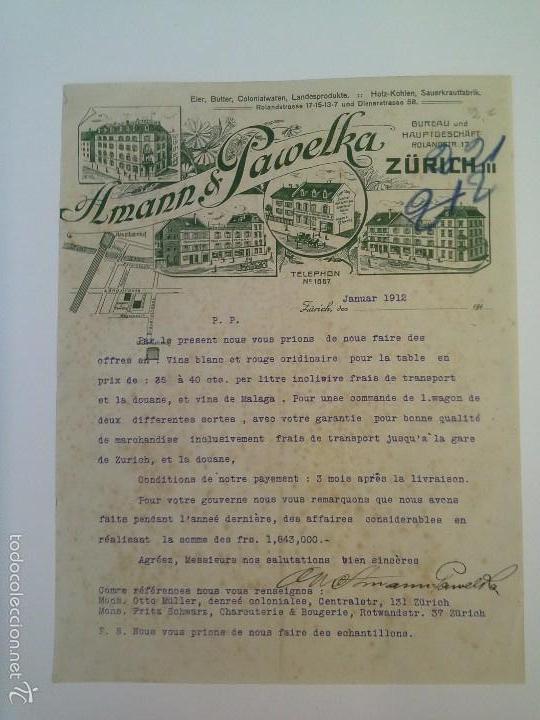 Eier, Butter, Colonialwaren, Landesprodukte. :: Holz-Kohlen, Sauerkrautfabrik.
Rolandstrasse 17-15-13-7 und Dienerstrasse 58.
BUREAU und
HAUPTGESCHÄFT
ROLANDSTR. 17
Amann & Pawelka
ZÜRICH III
Hauptbahnhof
TELEPHON
No 1657
Zürich, den Januar 1912 191
P. P.
Par le present nous vous prions de nous faire des
offres en : Vins blanc et rouge oridinaire pour la table en
prix de : 35 à 40 cts. per litre inclivive frais de transport
et la douane, et vins de Malaga . Pour unse commande de 1.wagon de
deux differentes sortes , avec votre garantie pour bonne qualité
de marchandise inclusivement frais de transport jusqu'à la gare
de Zurich, et la douane,
Conditions de notre payement : 3 mois après la livraison.
Pour votre gouverne nous vous remarquons que nous avons
faits pendant l'anneé dernière, des affaires considerables en
réalisant la somme des frs. 1,843,000.-
Agréez, Messieurs nos salutations bien sincères
Amann Pawelka
Comme références nous vous renseigns :
Mons. Otto Müller, denreé coloniales, Centralstr, 131 Zürich
Mons. Fritz Schwarz, Charcuterie & Bougerie, Rotwandstr. 37 Zürich
P. S. Nous vous prions de nous faire des echantillons.
todocoleccion